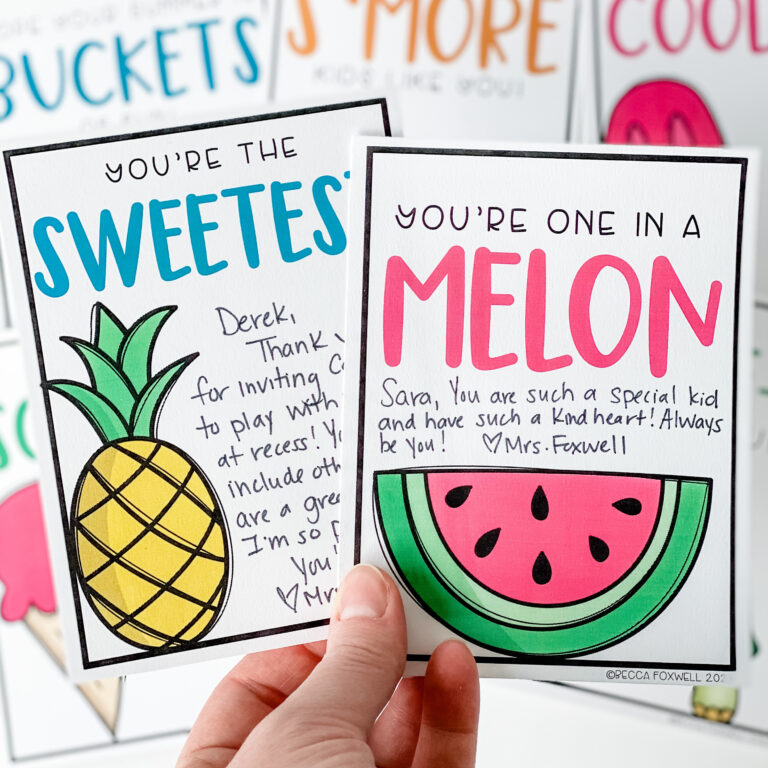 BUCKETS
S'MORE
KIDS LIKE YOU!
COOL
YOU'RE THE
SWEETEST
Derek,
Thank
for inviting
to play with
at recess!
include
are a
I'm so
You!
♡Mrs.
YOU'RE ONE IN A
MELON
Sara, You are such a special kid
and have such a kind heart! Always
be you! ♡Mrs. Foxwell
©BECCA FOXWELL